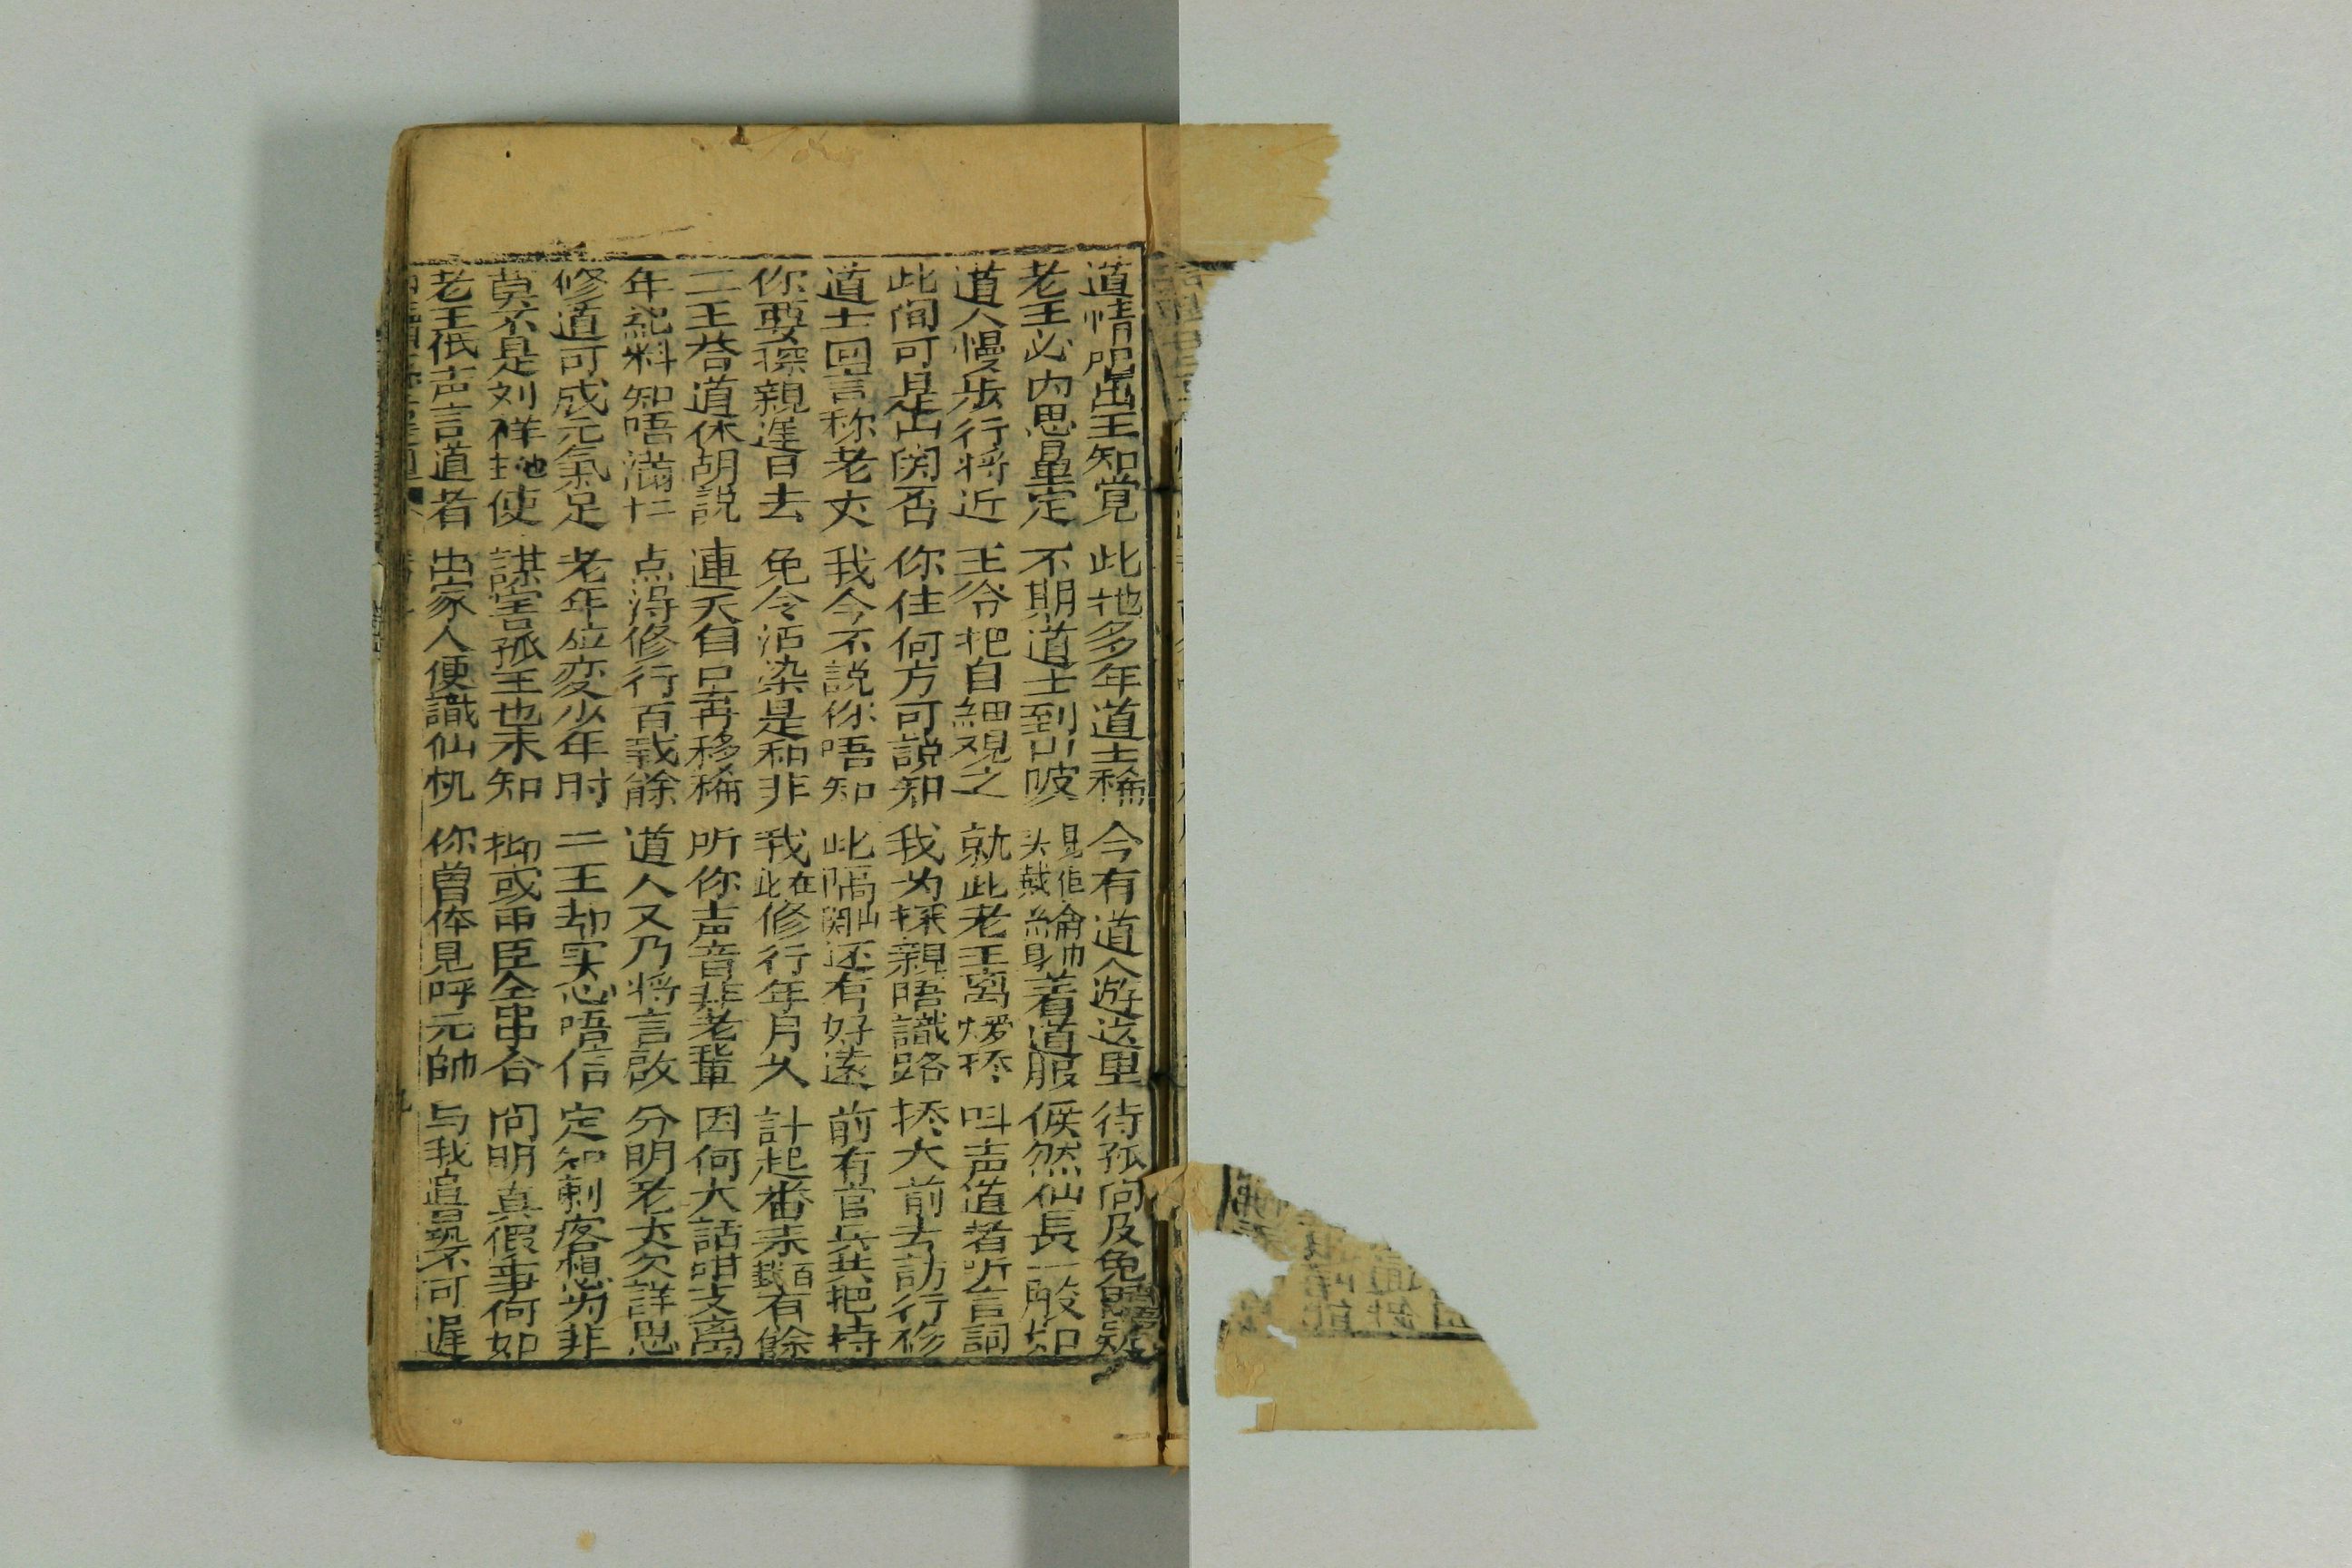 道情呢出王知覚 此地多年道士稀 今有道人遊这里 待孤问及免思疑
老王必内思量定 不期道士到山陂 見佢头戴綸巾身着道服 俟然仙長一般如
道人慢步行将近 王爷把自細观之 就此老王离煖𭡝 呌声道者听言詞
此间可是山関否 你住何方可説知 我为探親唔識路 𭡝大前去訪行移
道士回言称老丈 我今不説你唔知 此隔関山还有好遠 前有官兵共把持
你要探親逞日去 免令沾染是和非 我在此修行年月久 計起番来百載有餘
二王荅道休胡説 連天自古再移稀 听你声音非老輩 因何大話咁支离
年紀料知唔滿廿 点淂修行百载餘 道人又乃将言啟 分明老丈欠詳思
修道可成元氣足 老年位变少年时 二王却实心唔信 定知刺客想为非
莫不是刘祥地使 謀害孤王也未知 抑或甲臣仝串合 问明真假事何如
老王低声言道者 出家人便識仙机 你曽体見呼元帥 与我追尋不可遲